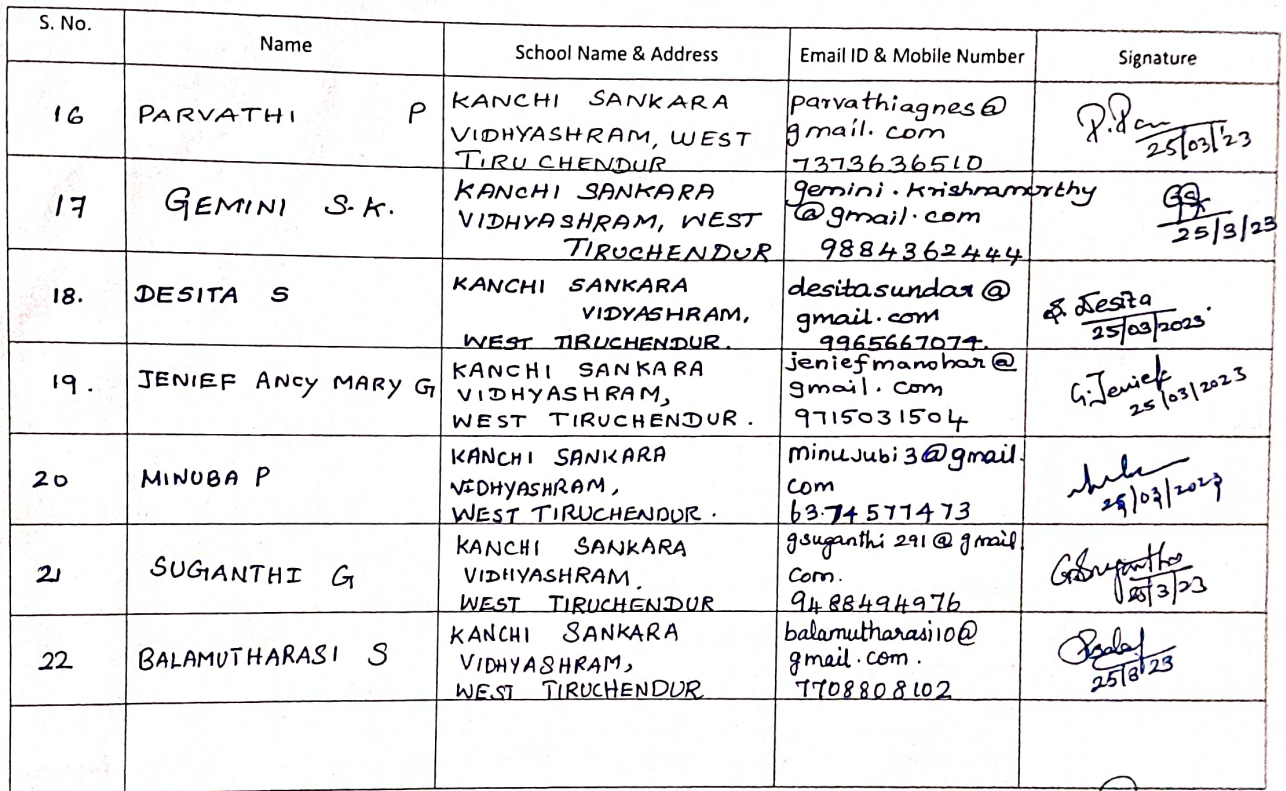 S. No.
Name
School Name & Address
Email ID & Mobile Number
Signature
16
PARVATHI P
KANCHI SANKARA
VIDHYASHRAM, WEST
TIRUCHENDUR
parvathiagnes@
gmail.com
7373636510
25/03/23
17
GEMINI S.K.
KANCHI SANKARA
VIDHYASHRAM, WEST
TIRUCHENDUR
gemini.krishnamorthy
@gmail.com
9884362444
25/3/23
18.
DESITA S
KANCHI SANKARA
VIDYASHRAM,
WEST TIRUCHENDUR.
desitasundar@
gmail.com
9965667074.
S. Desita
25/03/2023.
19.
JENIEF ANCY MARY G
KANCHI SANKARA
VIDHYASHRAM,
WEST TIRUCHENDUR.
jeniefmanohar@
gmail.com
9715031504
G. Jenief
25/03/2023
20
MINUBA P
KANCHI SANKARA
VIDHYASHRAM,
WEST TIRUCHENDUR.
minujubi3@gmail.
com
6374577473
25/03/2023
21
SUGANTHI G
KANCHI SANKARA
VIDHYASHRAM.
WEST TIRUCHENDUR
gsuganthi291@gmail
com.
9488494976
G. Suganthi
25/3/23
22
BALAMUTHARASI S
KANCHI SANKARA
VIDHYASHRAM,
WEST TIRUCHENDUR
balamutharasi10@
gmail.com.
7708808102
25/3/23